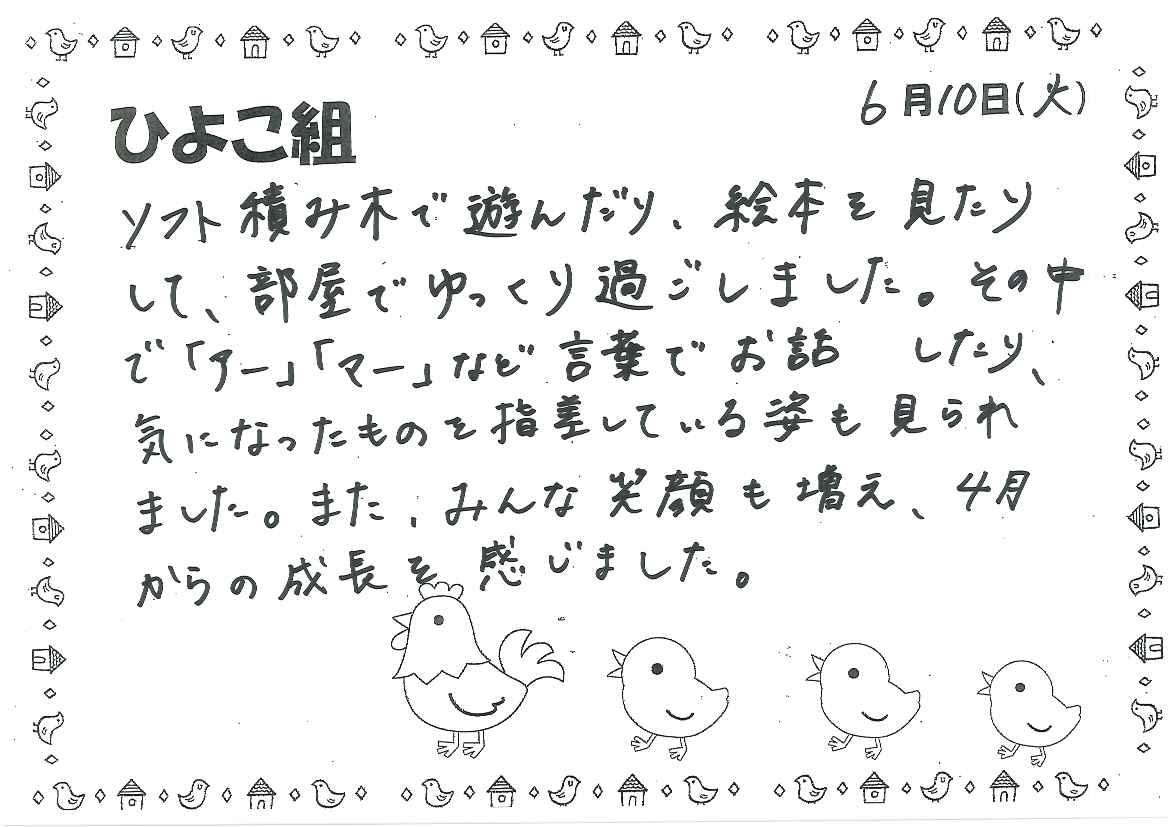 6月10日(火)
ひよこ組
ソフト積み木で遊んだり、絵本を見たり
して、部屋でゆっくり過ごしました。その中
で「アー」「マー」など言葉でお話 したり、
気になったものを指差している姿も見られ
ました。また、みんな笑顔も増え、4月
からの成長を感じました。